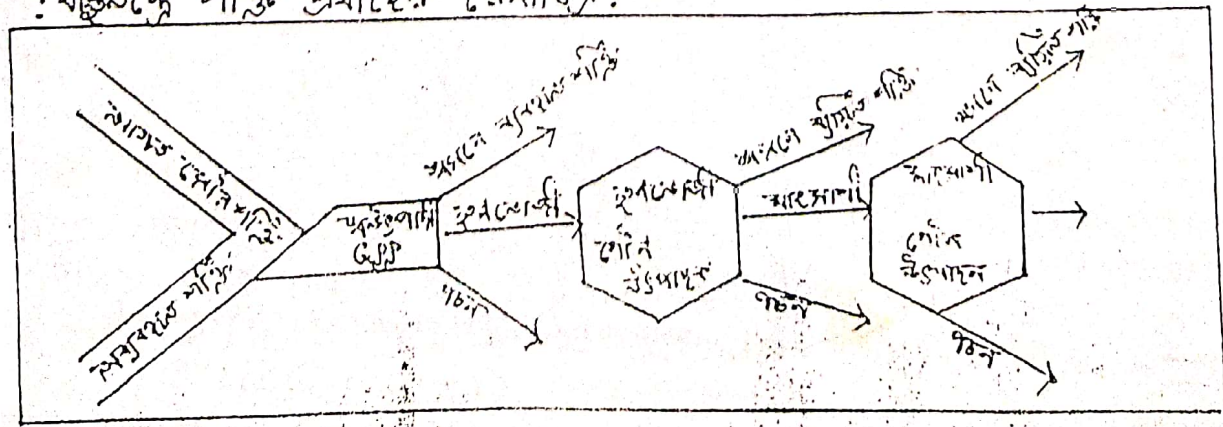 শক্তি প্রবাহের
আগত সৌরশক্তি
অব্যবহৃত শক্তি
শ্বসনে ব্যবহৃত শক্তি
তৃণভোজী
পচন
তৃণভোজী
গৌণ
উৎপাদন
শ্বসনে ব্যয়িত শক্তি
মাংসাশী
পচন
মাংসাশী
গৌণ
উৎপাদন
শ্বসনে ব্যয়িত শক্তি
পচন